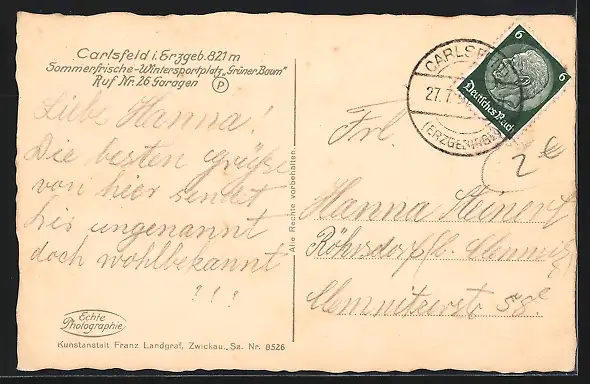 Carlsfeld i. Erzgeb. 821 m
Sommerfrische-Wintersportplatz „Grüner Baum"
Ruf Nr. 26 Garagen P
Liebe Hanna!
Die besten Grüße
von hier sendet
hier ungenannt
doch wohlbekannt
!!!
Echte
Photographie
Kunstanstalt Franz Landgraf, Zwickau, Sa. Nr. 8526
Alle Rechte vorbehalten
CARLSFELD
27.7.
(ERZGEBIRGE)
6 6
Deutsches Reich
2 €
Frl.
Hanna Steinert
Röhrsdorf b. Chemnitz
Chemnitzerstr. 58